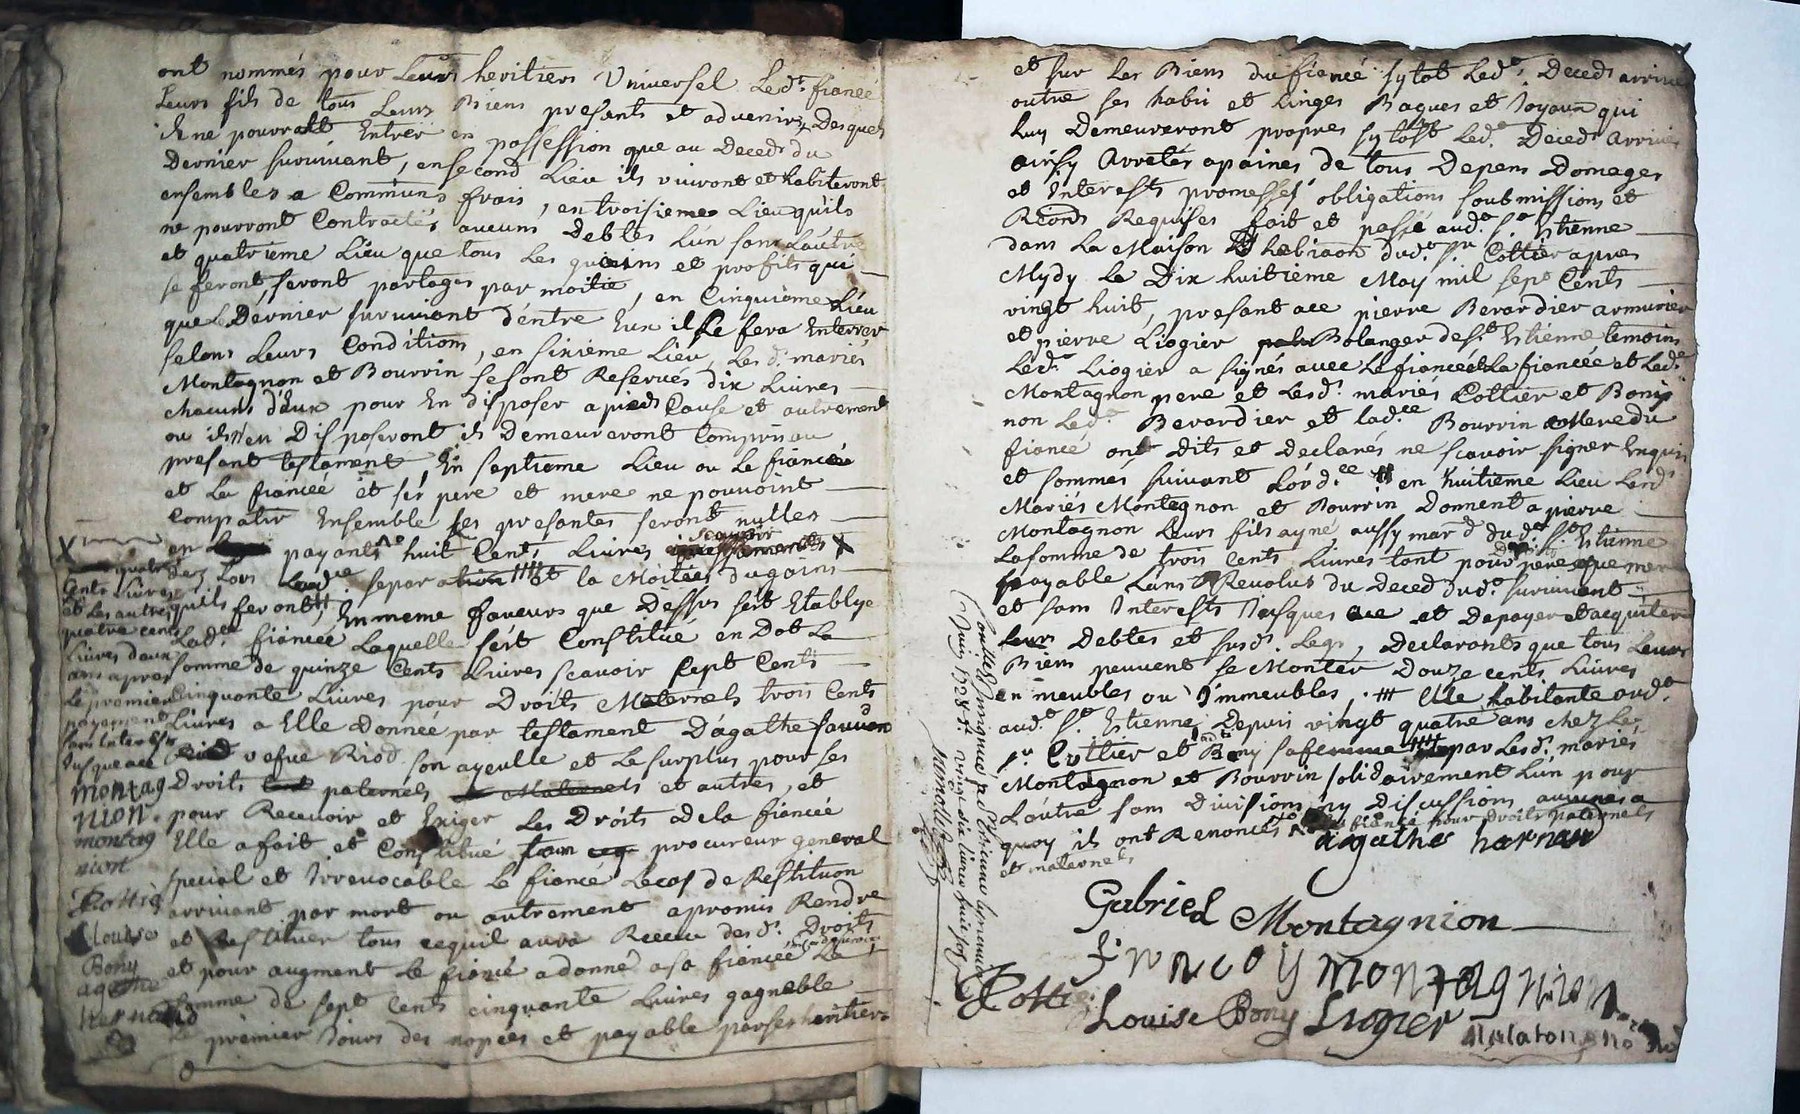 ont nommés pour Leurs heritiers Universel Led.t fiancé
Leurs fils de tous Leurs Biens presents et advenirs Desquels
il ne pourra Entrer en possession que au Deceds du
Dernier survivant, en second Lieu ils vivront et habiteront
ensembles a Communs frais, en troisieme Lieu quils
ne pourront Contracter aucuns Debtes L'un sans L'autre
et quatrieme Lieu que tous Les guains et profits qui
se feront, seront partages par moitié, en Cinquieme Lieu
que Le Dernier survivant d'entre Eux il se fera Enterrer
selons Leurs Conditions, en sixieme Lieu, Les d. mariés
Montagnon et Bourrin se sont Reservés dix Livres
chacuns d'Eux pour En disposer a pied Cause et autrement
ou ils n'en Disposeront ils Demeureront Compris au
present testament, En septieme Lieu ou Le fiancé
et La fiancée et ses pere et mere ne pouvoint
Compatir Ensemble Les presantes seront nulles
en payants huit Cents Livres scavoir
quatre
Cents Livres dez Lors separation et la Moitiée du gains
et Les autres quils feront, En meme faveurs que Dessus s'est Etablye
quatre cents
Lad.te fiancée Laquelle s'est Constitué en Dot La
Livres deux
ans apres somme de quinze Cents Livres scavoir sept Cents
Le premier Cinquante Livres pour Droits Maternels trois Cents
payement Livres a Elle donnée par testament D'agathe
sans Interests
Jusque ace vefue Riod son ayeulle et Le surplus pour ses
montag Droits paternels et autres, et
nion pour Recevoir et Exiger Les Droits de la fiancée
montag Elle a fait et Constitué procureur general
nion
special et Irrevocable Le fiancé Le cas de Restituon
Cottie arrivant par mort ou autrement a promis Rendre
Louise et Restituer tous cequil aura Receu des d. Droits
Bony et pour augment Le fiancé a donné a sa fiancée La
agathe
somme de sept Cents cinquante Livres gagnable
Le premier Jours des nopces et payable par ses heritiers
et sur Les Biens du fiancé sytot Led.t Deceds arrivé
outre ses habis et Linges Bagues et Joyaux qui
Luy Demeureront propres sytost Led.t Deceds arrivés
ainsy Arretés a paines de tous Depens Domages
et Interests promesses obligations soubmissions et
Reoons Requises fait et passé aud.t S.t Etienne
dans La Maison D'habiaon dud.t S.r Cottier apres
Mydy Le Dix huitieme May mil sept Cents
vingt huit, presant ace pierre Berardier armurier
et pierre Liogier Bolanger de S.t Etienne temoins
Led.t Liogier a signés avec Le fiancé et La fiancée et Led.t
Montagnon pere et Lesd. mariés Cottier et Bony
non Led.t Berardier et lad.te Bourrin Mere du
fiancé ont dits et declarés ne scavoir signer Enquis
et sommés suivant L'ord.ce en huitieme Lieu Lesd.
Mariés Montagnon et Bourrin Donnent a pierre
Montagnon Leurs fils ayné aussy mar.d dud.t S.t Etienne
La somme de trois cents Livres tant pour droits pere que mer
payable L'ans Revolus du Deced dud.t survivant
et sans Interests Jusques ace et de payer et acquiter
Leurs Debtes et susd. Legs, Declarants que tous Leurs
Biens peuvent se Monter Douze cents Livres
en meubles ou Immeubles, Elle habitante aud.t
aud.t S.t Etienne Depuis vingt quatre ans chez Le
S.r Cottier et Bony sa femme par Lesd. mariés
Montagnon et Bourrin solidairement L'un pour
L'autre sans Divisions ny Discussions aucunes a
quoy ils ont Renoncés fiancé pour droits paternels
et maternels
agathe
Gabriel Montagnion
francoy montagnion
Cottie
Louise Bony Liogier